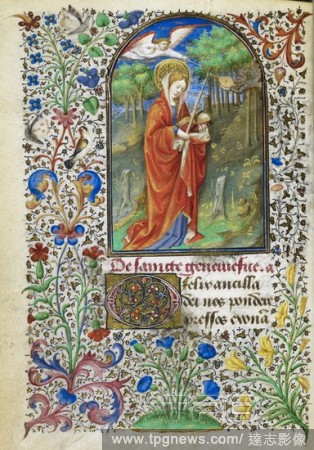 De sancte genevefue. a
O felix ancilla
dei nos pondere
pressos exona
www.tpgnews.com/ 達志影像